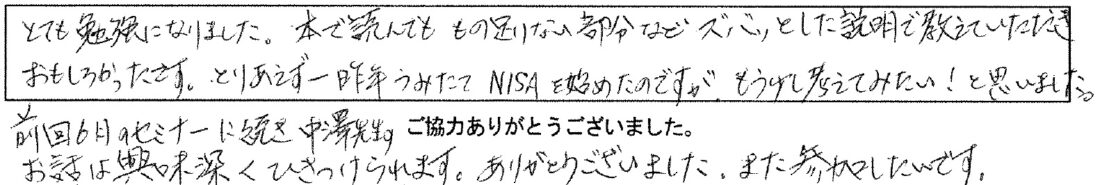 とても勉強になりました。本で読んでも もの足りない部分など ズバッとした説明で教えていただき
おもしろかったです。とりあえず一昨年うみたて NISAを始めたのですが、もう少し考えてみたい！と思いました。
前回6月のセミナーに続き 中澤先生の
ご協力ありがとうございました。
お話は興味深くひきつけられます。ありがとうございました。また参加したいです。